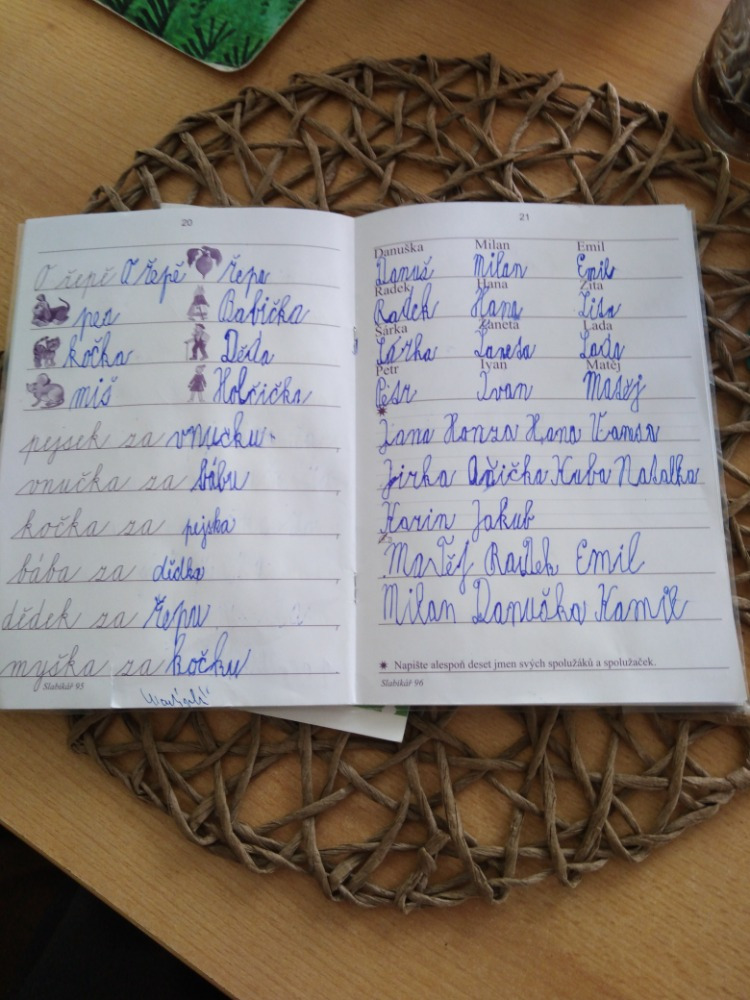 20
O řepě O řepě řepa
pes Babička
kočka Děda
miš Holčička
pejsek za vnučku
vnučka za bábu
kočka za pejska
bába za dědka
dědek za řepu
myška za kočku
Slabikář 95
21
Danuška Milan Emil
Danuš Milan Emil
Radek Hana Zita
Radek Hana Zita
Šárka Žaneta Lada
Šárka Žaneta Lada
Petr Ivan Matěj
Petr Ivan Matěj
Jana Honza Hana
Jirka Kuba Natalka
Karin Jakub
Matěj Radek Emil
Milan Danuška Kamil
Napište alespoň deset jmen svých spolužáků a spolužaček.
Slabikář 96